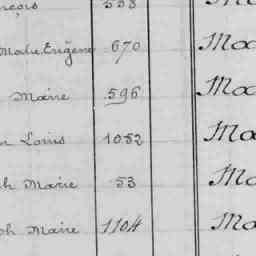 nçois 558
Marie Eugène 670 Mo
Marie 596 Mo
n Louis 1052 Ma
h Marie 53 Ma
ph Marie 1104 Ma